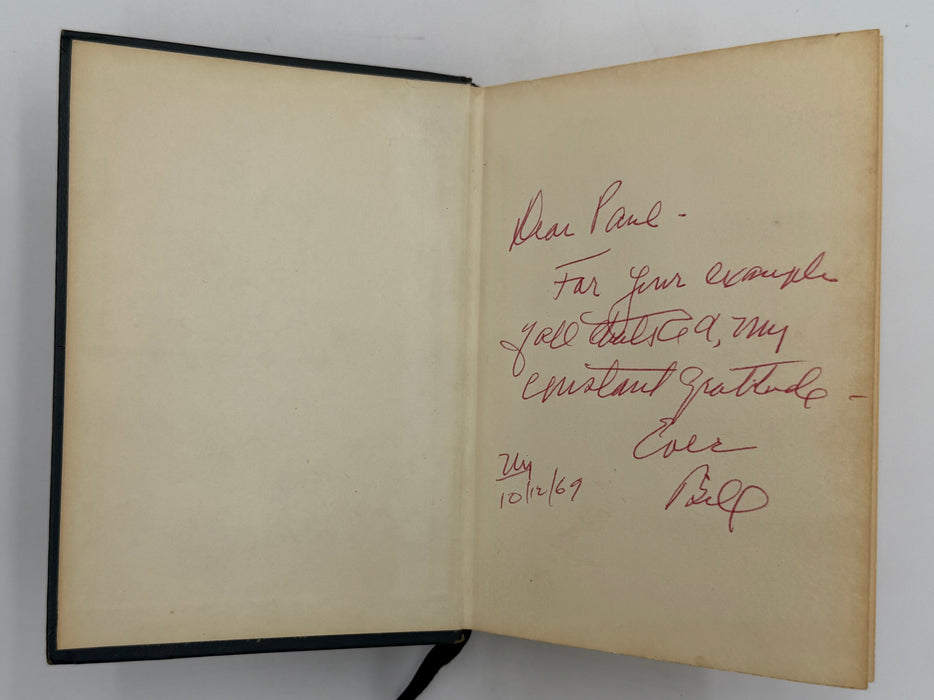 Dear Paul -
For your example
of all, my
constant gratitude -
Ever
Bill
NY
10/12/69